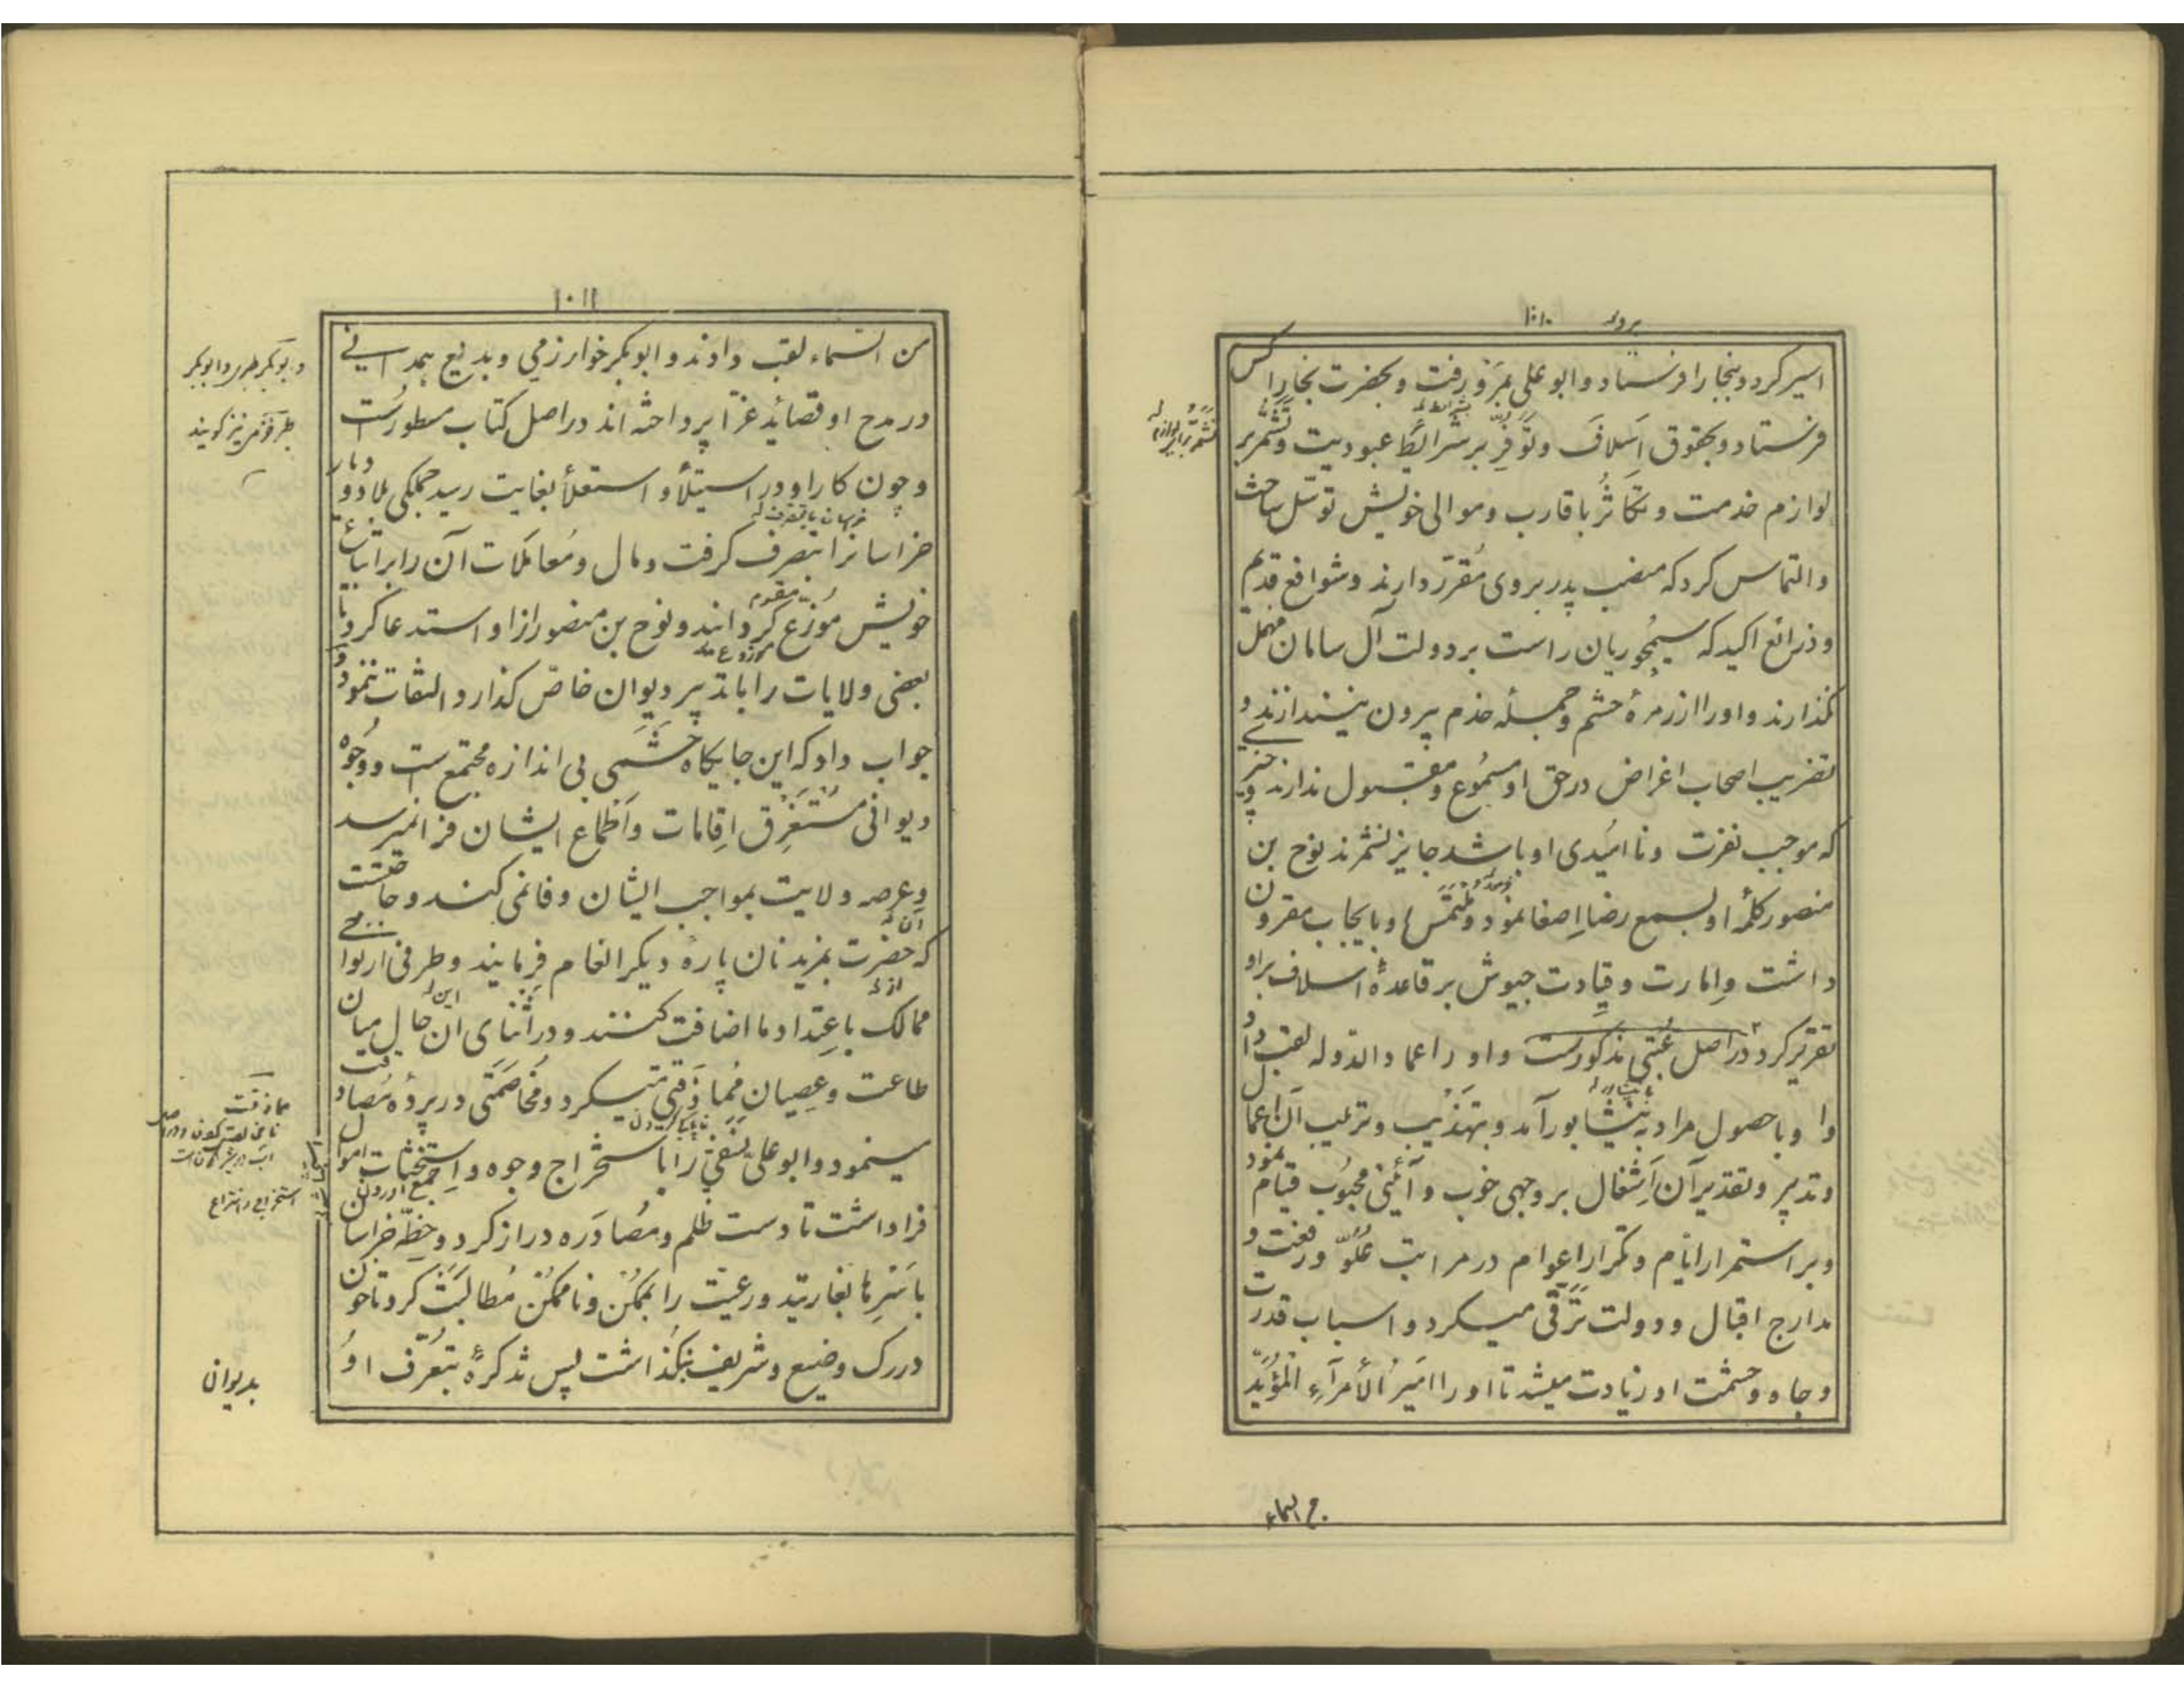 اسیر کرد و ببخارا فرستاد و ابو علی بمرو رفت و بحضرت بخارا کس
فرستاد و بحقوق اسلاف و توفّر بر شرائط عبودیت و تشمّر بر
لوازم خدمت و تکاثُر باقارب و موالی خویش توسّل ساخت
و التماس کرد که منصب پدر بر وی مُقرّر دارند و شوافع قدیم
و ذرائع اکید که سیمجوریان راست بر دولت آل سامان مهمل
نگذارند و او را از زمرهٔ حشم و جملهٔ خدم بیرون نیندازند و
تضریب اصحاب اغراض در حق او مسمُوع و مقبول ندارند و چیزی
که موجب نفرت و نا امیدی او باشد جایز نشمرند نوح بن
منصور کلمهٔ او بسمع رضا اِصغا نمود و ملتمس او بایجاب مقرون
داشت و اِمارت و قِیادت جیوش بر قاعدهٔ اسلاف بر او
تقریر کرد در اصل عُتبی مذکورست و او را عماد الدوله لقب داد
وا و با حصول مراد به نیشابور آمد و بتهذیب و ترتیب آن اعمال
و تدبیر و تقدیر آن اَشغال بر وجهی خوب و آئینی محبُوب قیام نمود
و بر استمرار ایّام و تکرار اعوام در مراتب عُلُوّ و رفعت و
مدارج اقبال و دولت ترّقی میکرد و اسباب قدرت
و جاه و حشمت او زیادت میشد تا او را امَیرُ الأمرآءِ المُؤیّد
من السماء
۱۰۱۱
من السّماء لقب دادند و ابوبکر خوارزمی و بدیع همدانی
در مدح او قصائد غرّا پرداخته‌اند در اصل کتاب مسطورست
و چون کار او در استیلأ و استعلأ بغایت رسید جملگی بلاد و دیار
خراسانرا بتصرف گرفت و مال و مُعاملات آن را بر اتباع
خویش مُوزّع گردانید و نوح بن منصور ازا و استدعا کرد تا
بعضی ولایات را با تدبیر دیوان خاصّ گذارد التفات ننمود و
جواب داد که این جایگاه حَشَمی بی اندازه مجتمع است و وجُوه
دیوانی مُستَغرِق اِقامات و اَطماع ایشان فرا نمیرسد
و عرصهٔ ولایت بمواجب ایشان وفا نمی کند و حاجتست
که حضرت بمزید نان پارهٔ دیگر انعام فرمایند و طرفی از نواحی
ممالک با عِتداد ما اضافت کنند و در اَثنای ان حال میان
طاعت و عِصیان مُماذَقتی میکرد و مُخاصَمتی در پردهٔ مُصادقت
مینمود و ابو علیّ نَسَفی را با ستخراج وجوه و استحثاث اموال
فرا داشت تا دست ظلم و مُصادَره دراز کرد و خِطّهٔ خراسان
باسَرِها بغارتید و رعیّت را بممکن و نا ممکن مُطالبَت کرد تا خون
در رگ وضیع و شریف بنگذاشت پس تذکرهٔ بتعرّف او
بدیوان